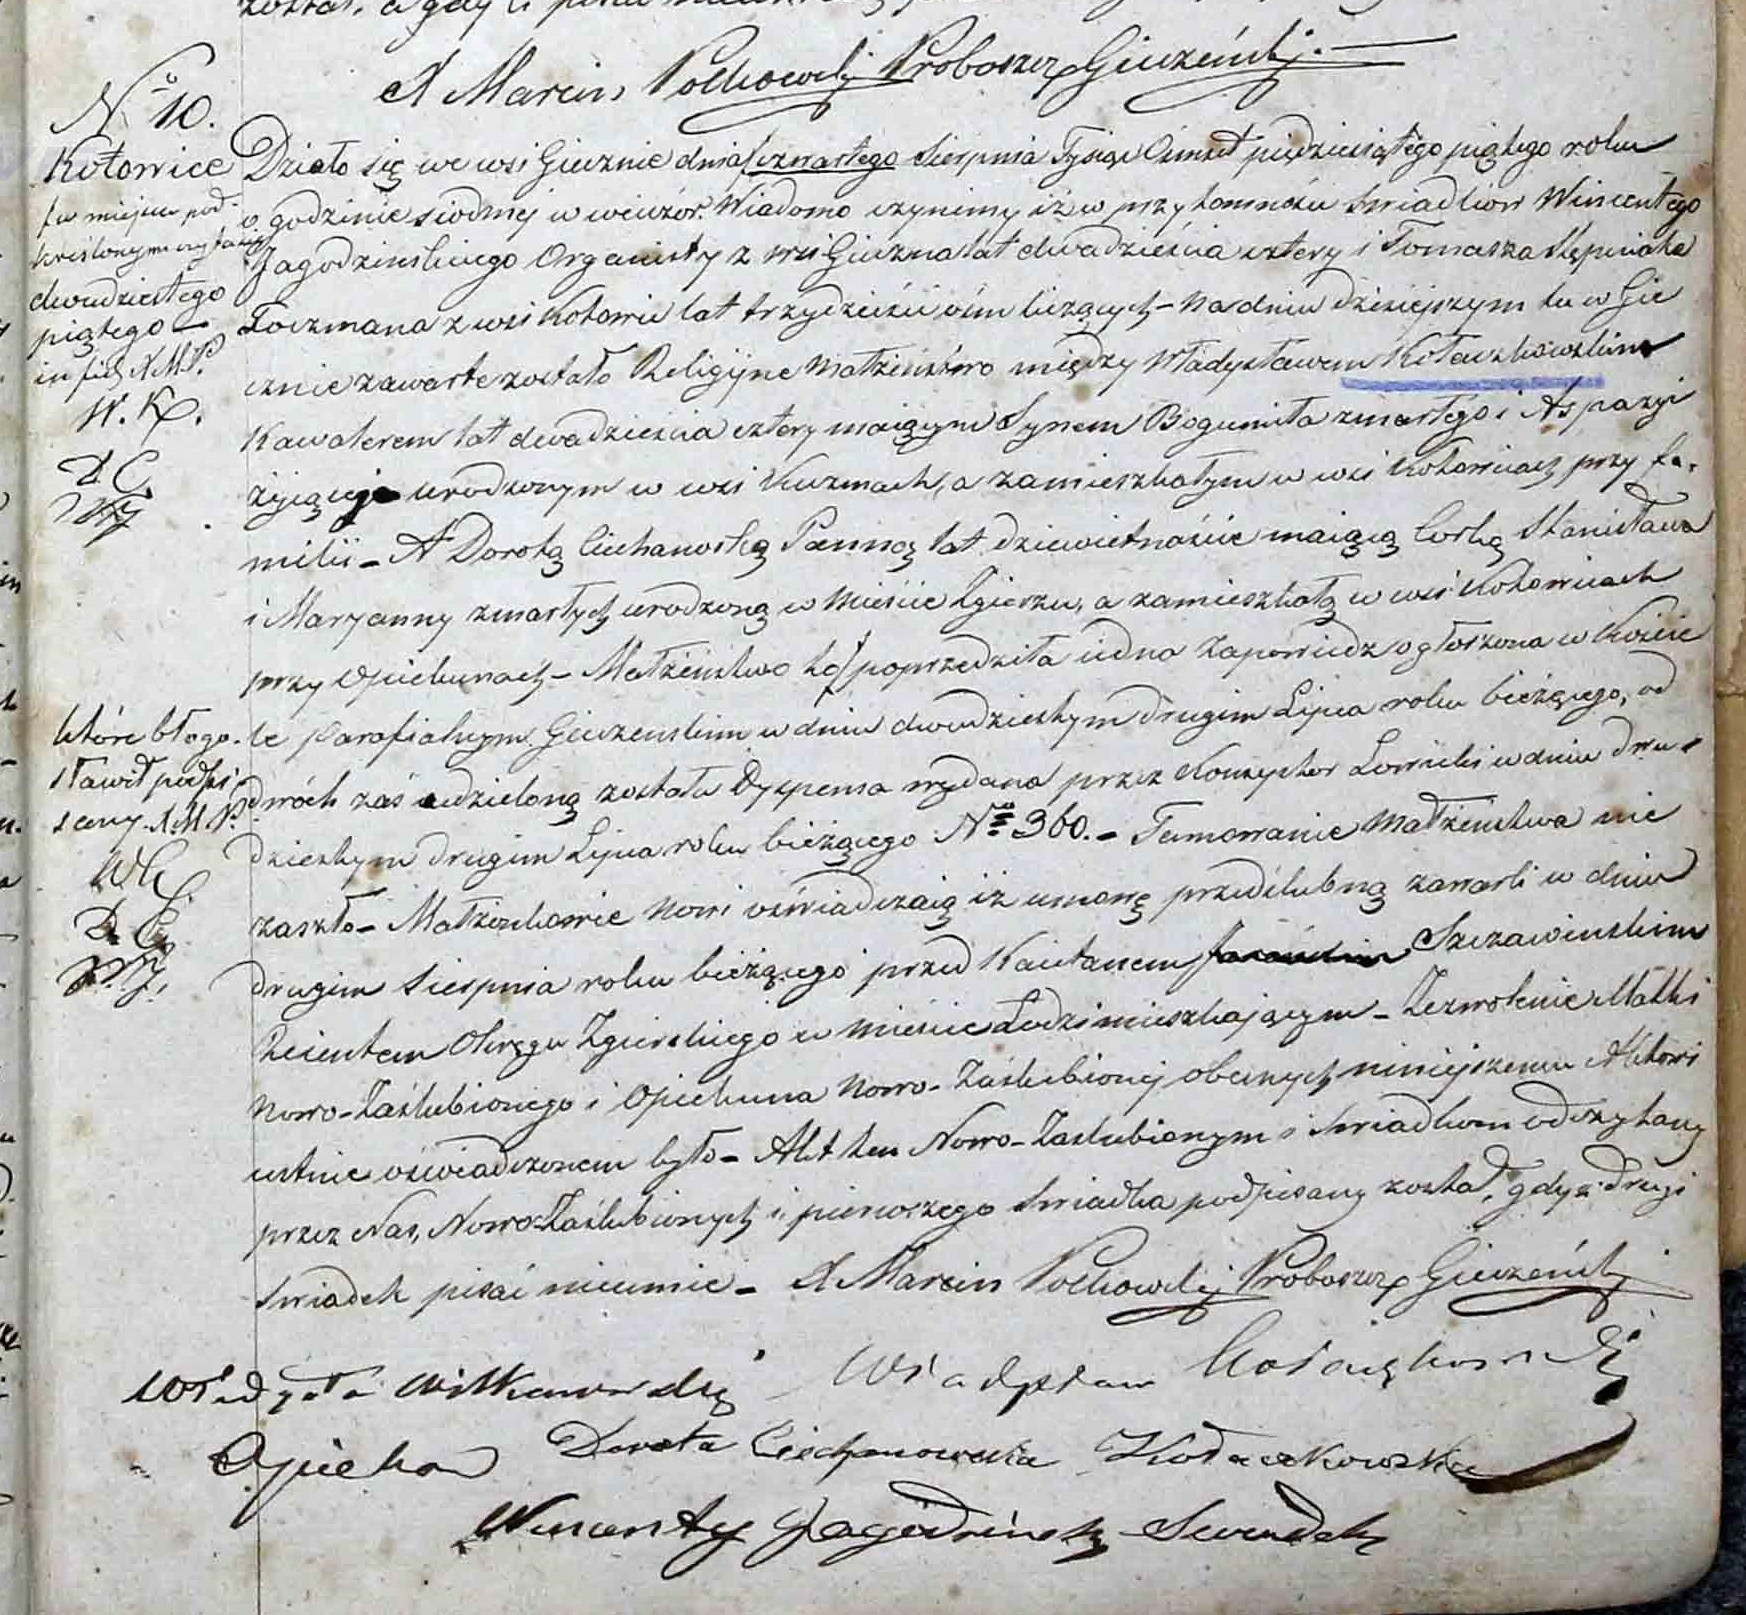 został, a gdy ci pisać
X Marcin Połkowski Proboszcz Gieczeński.
No 10.
Kotowice
w miejscu pod-
kreślonym czytać się
dwudziestego
piątego
X. M. P.
W. K.
D. C.
W. J.
Działo się we wsi Giecznie dnia czwartego Sierpnia Tysiąc Ośmset pięćdziesiątego piątego roku
o godzinie siodmej w wieczór. Wiadomo czynimy iż w przytomności Swiadków Wincentego
Jagodzinskiego Organisty z wsi Gieczna lat dwadzieścia cztery i Tomasza Stępniaka
Loczmana z wsi Kotowic lat trzydzieści ośm liczących – Na dniu dzisiejszym tu w Gie
cznie zawarte zostało Religijne Małżeństwo między Władysławem Kołaczkowskim
Kawalerem lat dwadzieścia cztery maiącym Synem Bogumiła zmarłego i Aspazyi
żyjącej urodzonym w wsi Kuzmach, a zamieszkałym w wsi Kotowicach przy fa-
milii – A Dorotą Ciechanoską Panną lat dziewietnaście maiącą Corką Stanisława
i Maryanny zmarłych urodzoną w Mieście Zgierzu, a zamieszkałą w wsi Kotowicach
przy Opiekunach – Małżeństwo to poprzedziła iedna Zapowiedz ogłoszona w Koście
le Parafialnym Gieczenskim w dniu dwudziestym drugim Lipca roku bieżącego, od
dwóch zaś udzieloną została Dyspensa wydana przez Konsystor Łowicki w dniu dwu-
dziestym drugim Lipca roku bieżącego No 360. – Tamowanie Małżeństwa nie
zaszło – Małżonkowie Nowi oświadczaią iż umowę przedślubną zawarli w dniu
drugim Sierpnia roku bieżącego przed Kaietanem Szczawinskim
Reientem Okręgu Zgierskiego w Mieście Łodzi mieszkającym – Zezwolenie Matki
Nowo-Zaślubionego i Opiekuna Nowo-Zaślubionej obecnych niniejszemu Aktowi
ustnie oświadczonem było – Akt ten Nowo-Zaslubionym i Swiadkom odczytany
przez Nas, Nowo-Zaślubionych i pierwszego Swiadka podpisany został, gdyż drugi
Swiadek pisać nieumie – X Marcin Połkowski Proboszcz Gieczeński
które błogo-
sławił podpi-
sany. X. M. P.
W. K.
D. C.
W. J.
Witkowski Władysław Kołaczkowski
Opiekon Dorota Ciechanowska Kołaczkowska
Wincenty Jagodzinski Swiadek